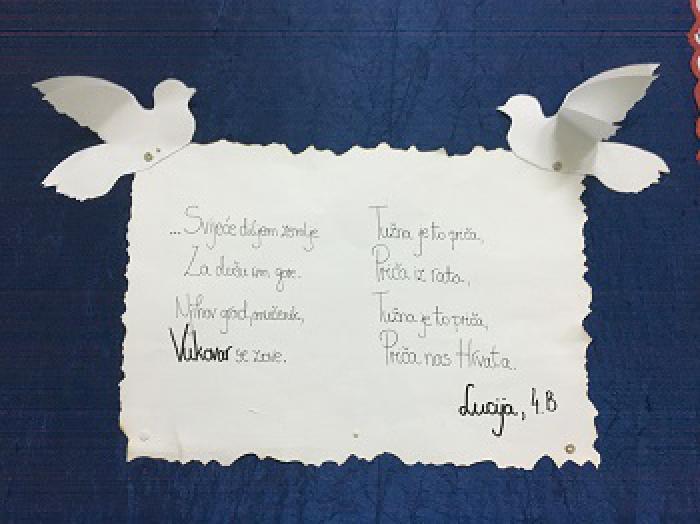 ...Svijeće diljem zemlje
Za dušu im gore.
Njihov grad, mučenik,
Vukovar se zove.
Tužna je to priča,
Priča iz rata,
Tužna je to priča,
Priča nas Hrvata.
Lucija, 4.B